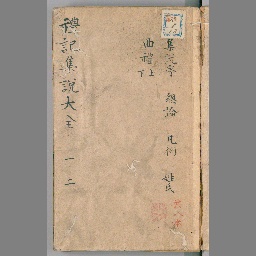 禮記集說大全 一 二
集說序 總論 凡例 姓氏
曲禮上
下